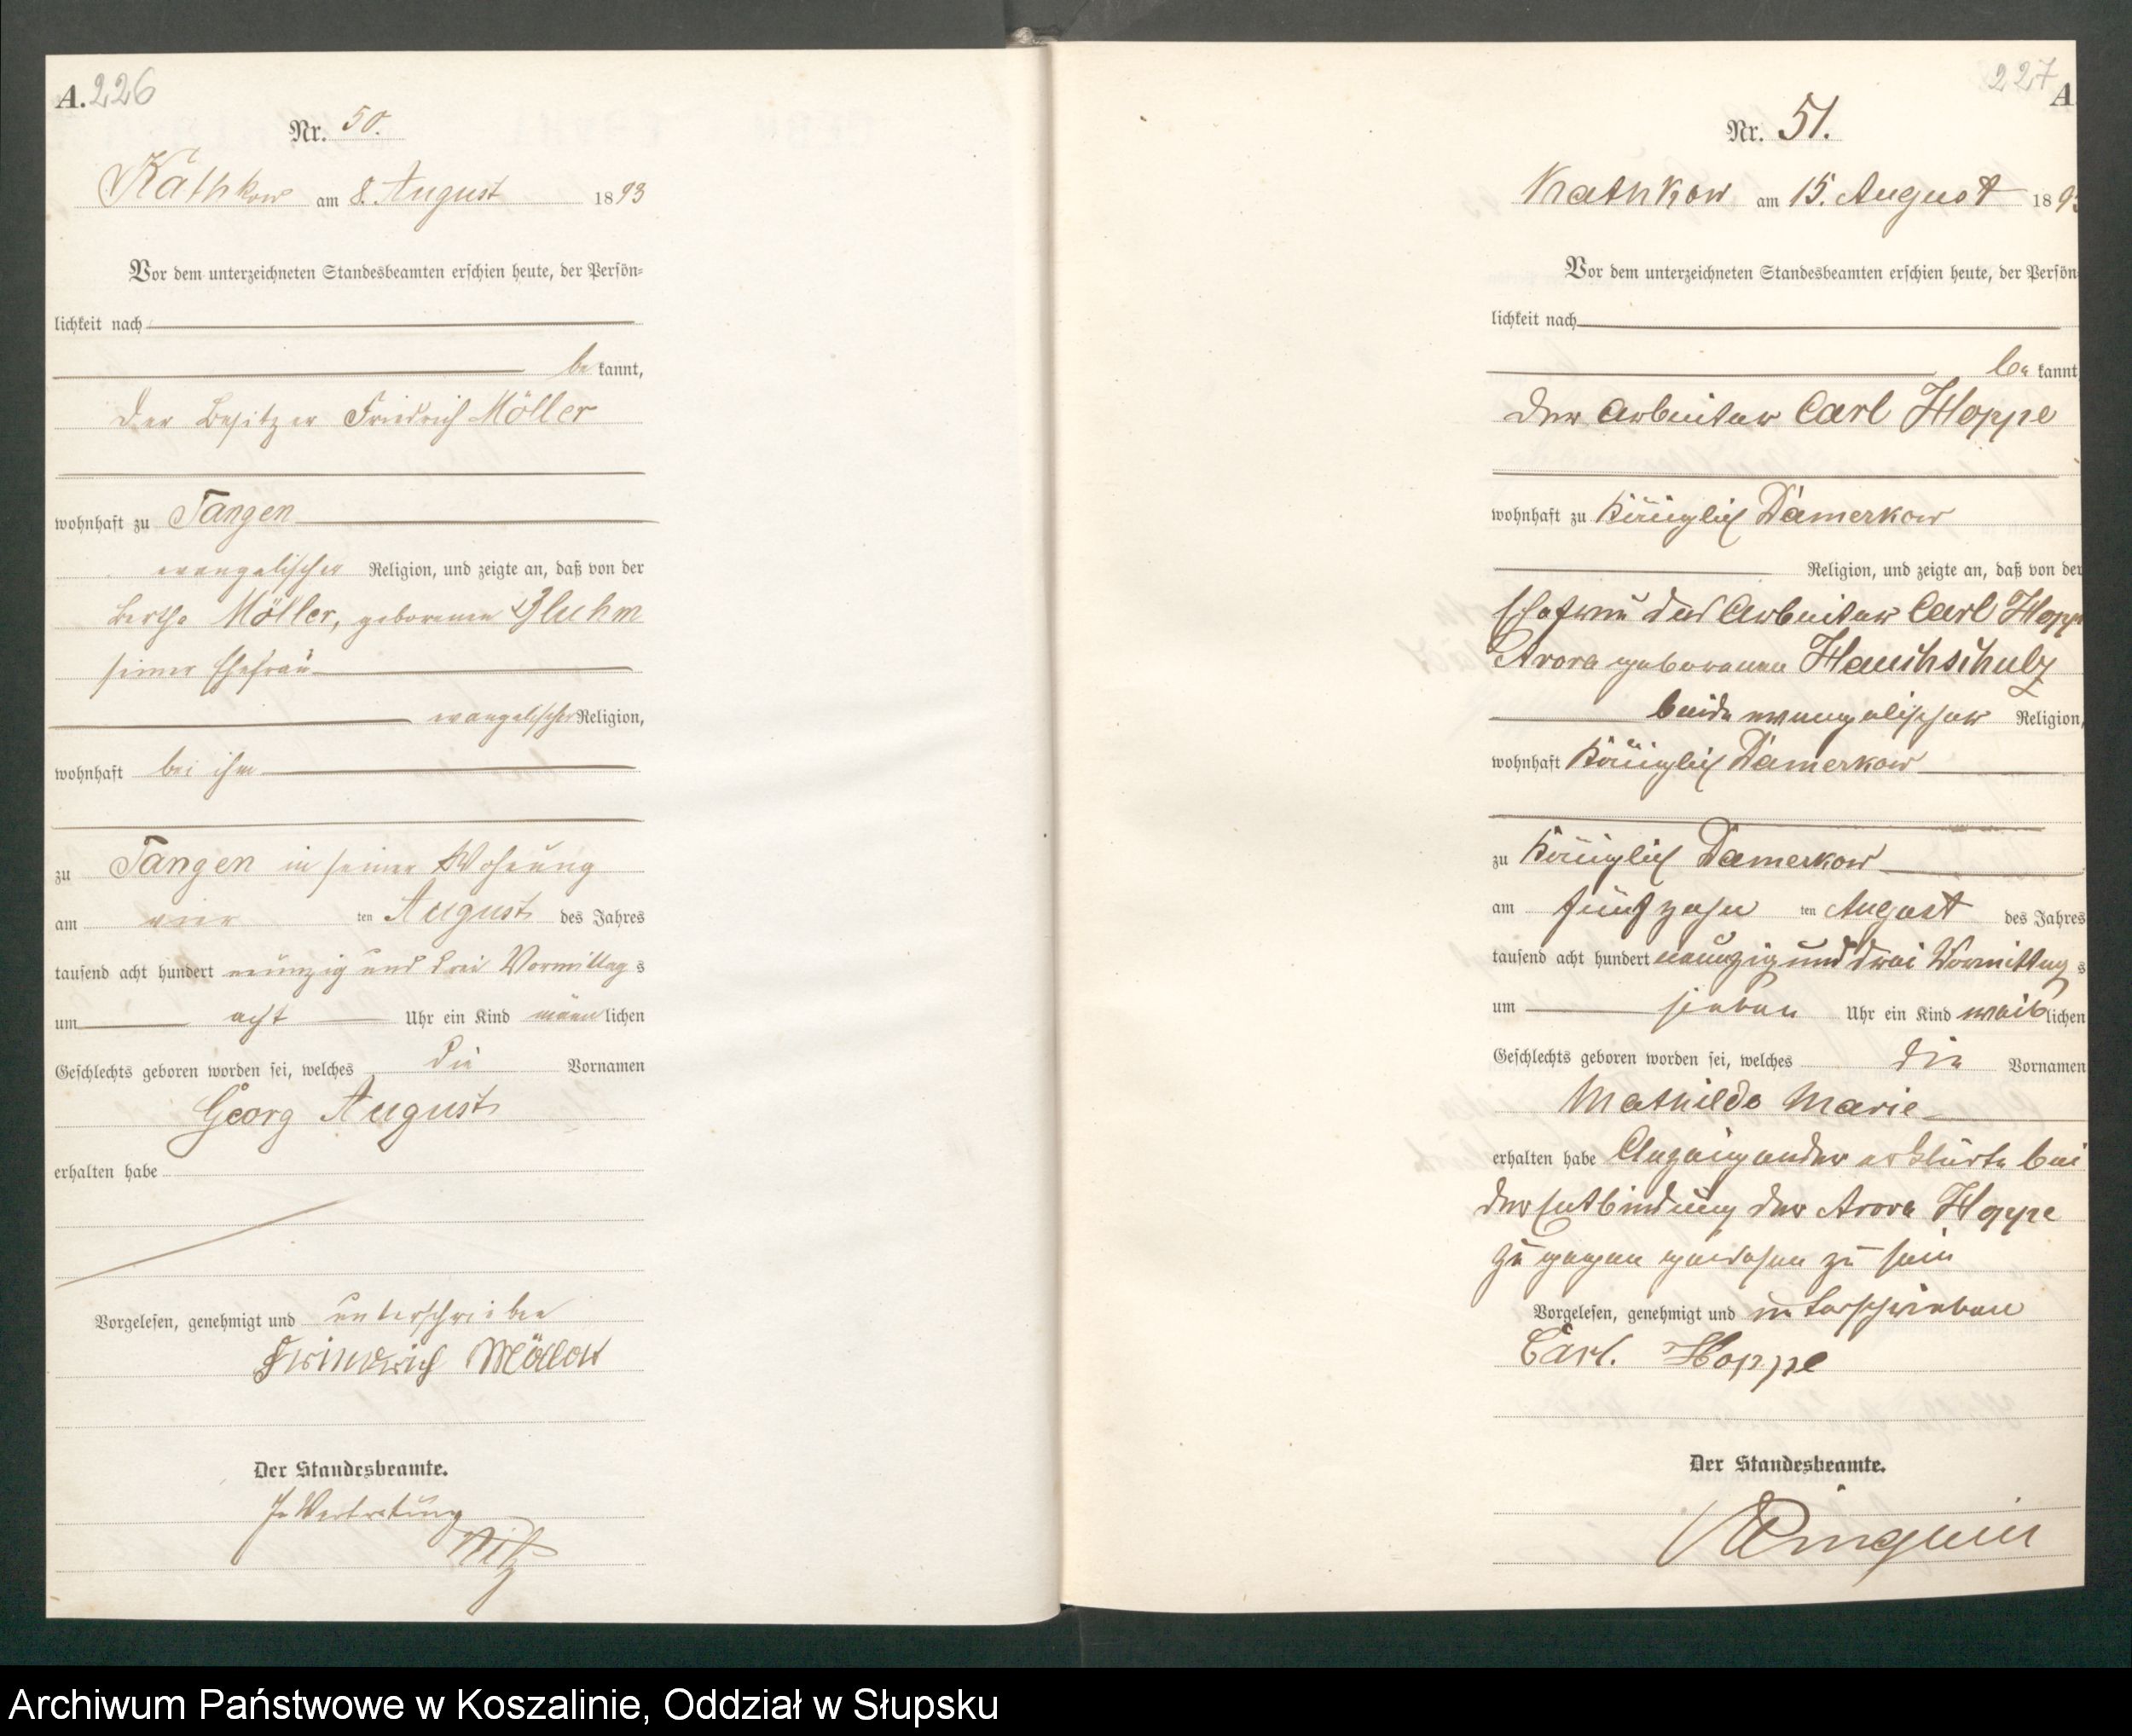 A. 226
Nr. 50.
Kathkow am 8. August 1893
Vor dem unterzeichneten Standesbeamten erschien heute, der Persön-
lichkeit nach
be kannt,
der Besitzer Friedrich Möller
wohnhaft zu Tangen
evangelischer Religion, und zeigte an, daß von der
Bertha Möller, geborenen Bluhm
seiner Ehefrau
evangelischer Religion,
wohnhaft bei ihm
zu Tangen in seiner Wohnung
am vier ten August des Jahres
tausend acht hundert neunzig und drei Vormittag s
um acht Uhr ein Kind männ lichen
Geschlechts geboren worden sei, welches die Vornamen
Georg August
erhalten habe
Vorgelesen, genehmigt und unterschrieben
Friedrich Möller
Der Standesbeamte.
In Vertretung
227 A
Nr. 51.
Kathkow am 15. August 189
Vor dem unterzeichneten Standesbeamten erschien heute, der Persön
lichkeit nach
be kannt
der Arbeiter Carl Hoppe
wohnhaft zu Königlich Damerkow
Religion, und zeigte an, daß von der
Ehefrau des Arbeiter Carl Hoppe
Arora geborenen Hauchschulz
beide evangelischer Religion,
wohnhaft Königlich Damerkow
zu Königlich Damerkow
am fünfzehn ten August des Jahres
tausend acht hundert neunzig und drei Vormittag s
um sieben Uhr ein Kind weib lichen
Geschlechts geboren worden sei, welches die Vornamen
Mathilde Marie
erhalten habe Anzeigender erklärte bei
der Entbindung der Arora Hoppe
zugegen gewesen zu sein
Vorgelesen, genehmigt und unterschrieben
Carl. Hoppe
Der Standesbeamte.
Archiwum Państwowe w Koszalinie, Oddział w Słupsku